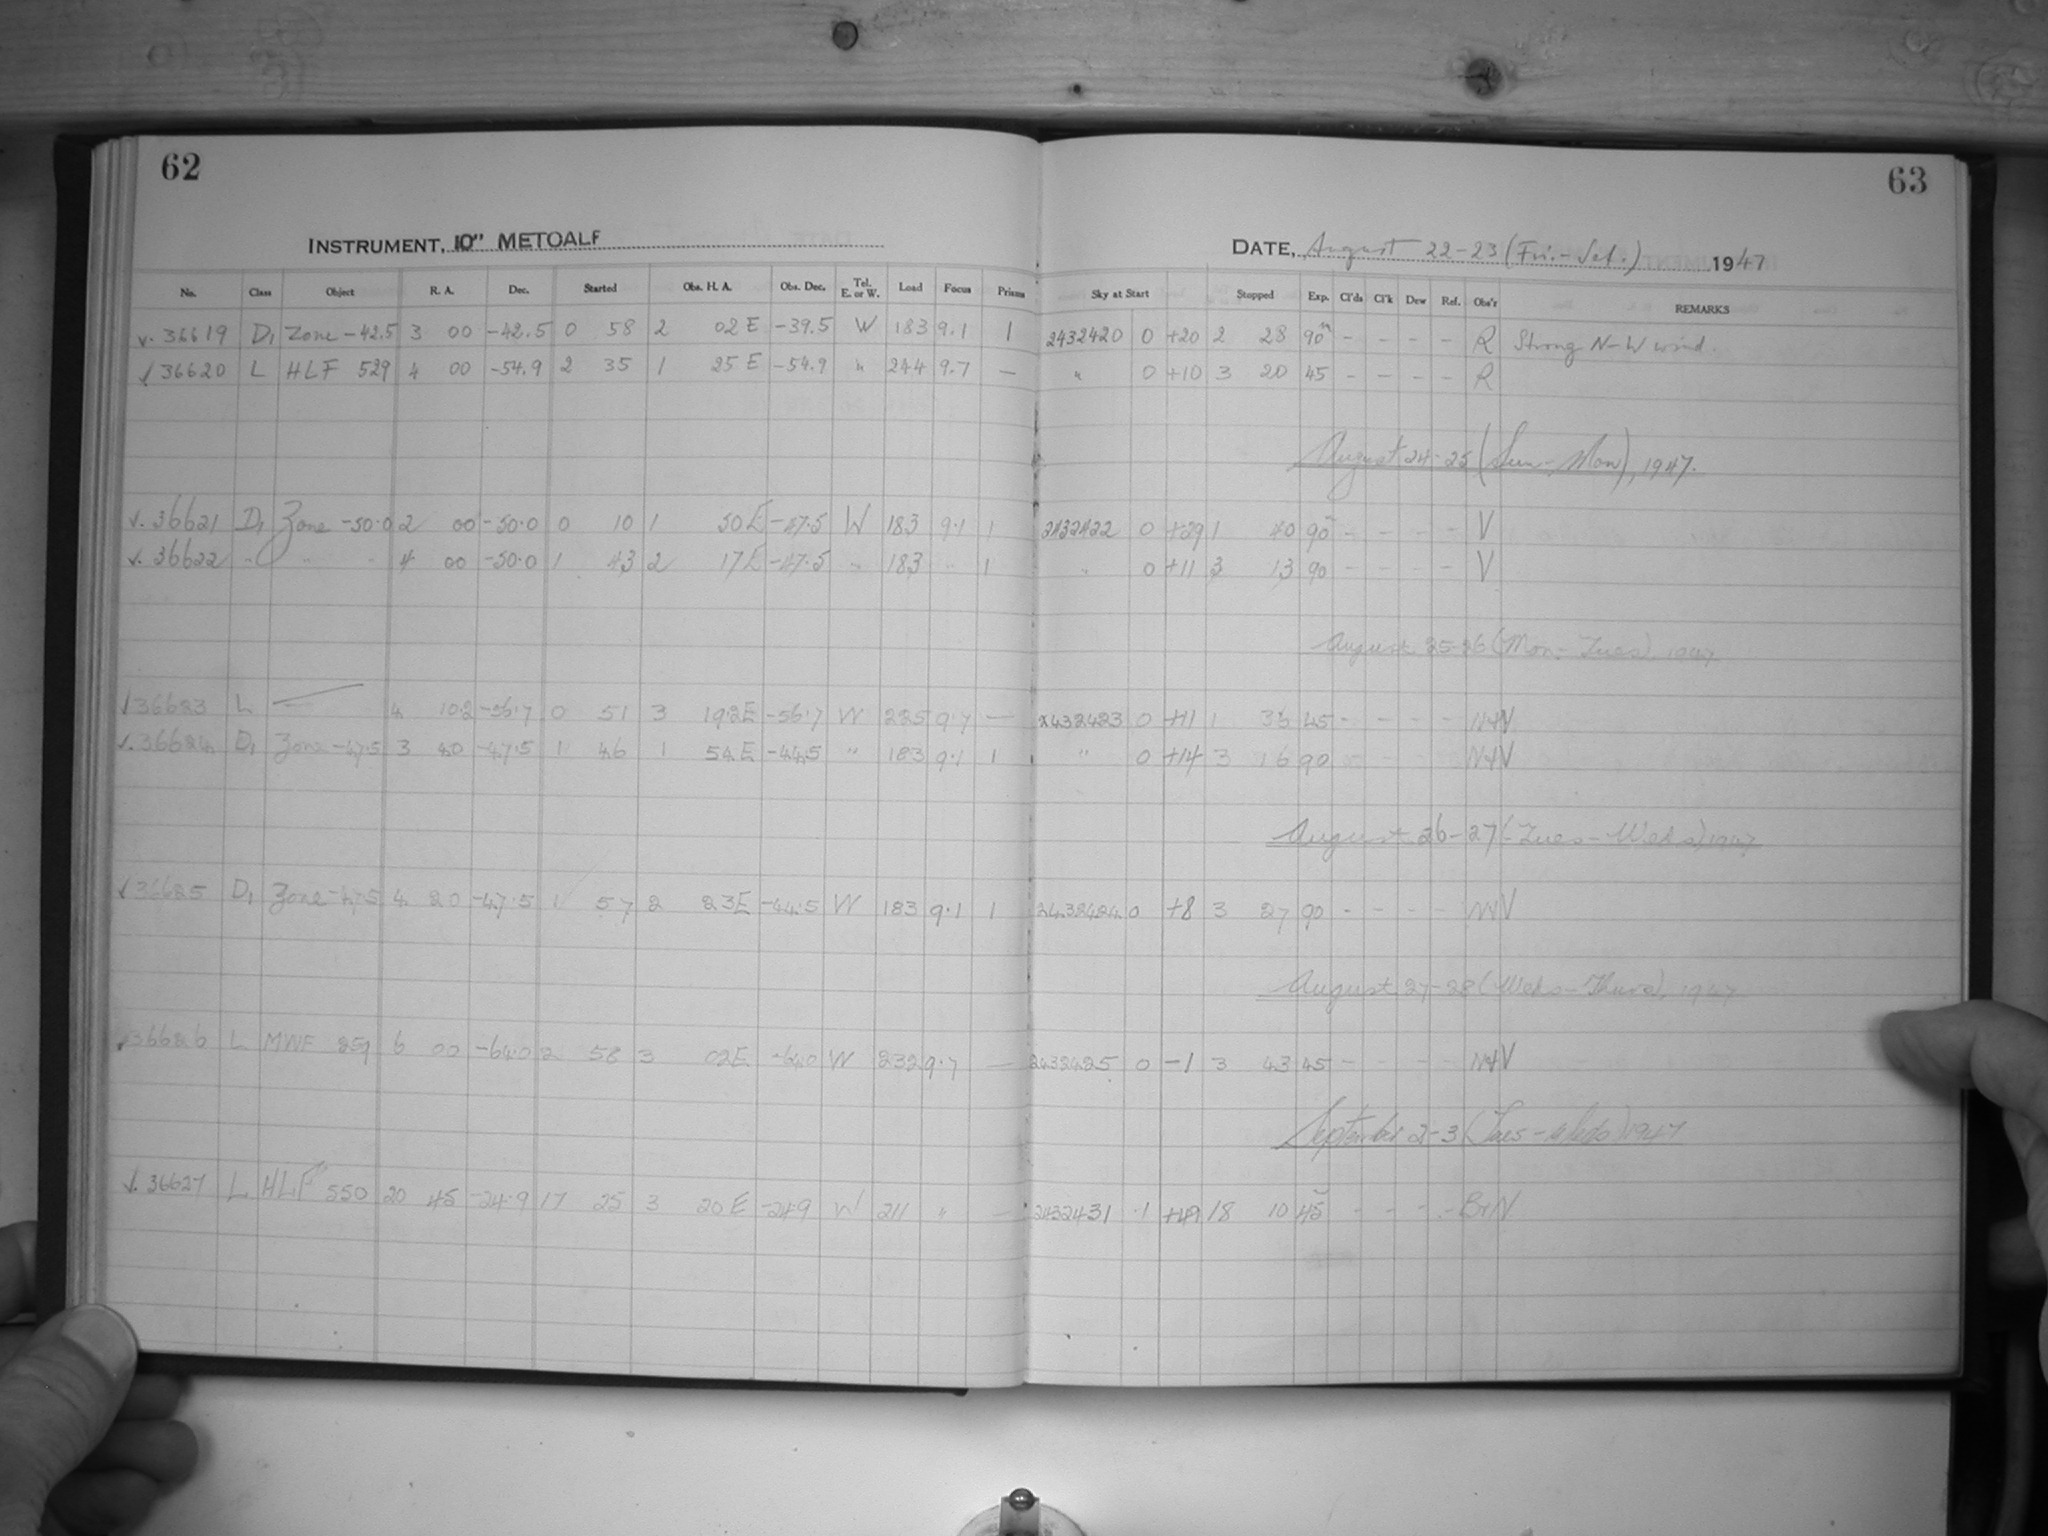 62
63
INSTRUMENT, 10" METCALF
DATE, August 22-23 (Fri.-Sat.) 1947
No. Class Object R. A. Dec. Started Obs. H. A. Obs. Dec. Tel. E. or W. Load Focus Prisms Sky at Start Stopped Exp. Cl'ds Cl'k Dew Ref. Obs'r REMARKS
v. 36619 D1 Zone -42.5 3 00 -42.5 0 58 2 02 E -39.5 W 183 9.1 1 2432420 0 +20 2 28 90m - - - - R Strong N-W wind.
√ 36620 L HLF 529 4 00 -54.9 2 35 1 25 E -54.9 " 244 9.7 — " 0 +10 3 20 45 - - - - R
August 24-25 (Sun-Mon), 1947.
v. 36621 D1 Zone -50.0 2 00 -50.0 0 10 1 50 E -47.5 W 183 9.1 1 2432422 0 +29 1 40 90m - - - - V
v. 36622 " " - 4 00 -50.0 1 43 2 17 E -47.5 " 183 " 1 " 0 +11 3 13 90 - - - - V
August 25-26 (Mon-Tues), 1947
√ 36623 L — 4 10.2 -56.7 0 51 3 19.2E -56.7 W 225 9.7 — 2432423 0 +11 1 36 45 - - - -
v. 36624 D1 Zone -47.5 3 40 -47.5 1 46 1 54 E -44.5 " 183 9.1 1 " 0 +14 3 16 90 - - - -
August 26-27 (Tues-Weds) 1947
√ 36625 D1 Zone -47.5 4 20 -47.5 1 57 2 23E -44.5 W 183 9.1 1 2432424 0 +8 3 27 90 - - - -
August 27-28 (Weds-Thurs), 1947
√ 36626 L MWF 259 6 00 -64.0 2 58 3 02E -64.0 W 232 9.7 — 2432425 0 -1 3 43 45 - - - -
September 2-3 (Tues-Weds) 1947
√. 36627 L HLF 550 20 45 -24.9 17 25 3 20 E -24.9 W 211 " — 2432431 -1 +49 18 10 45m - - - - BrN